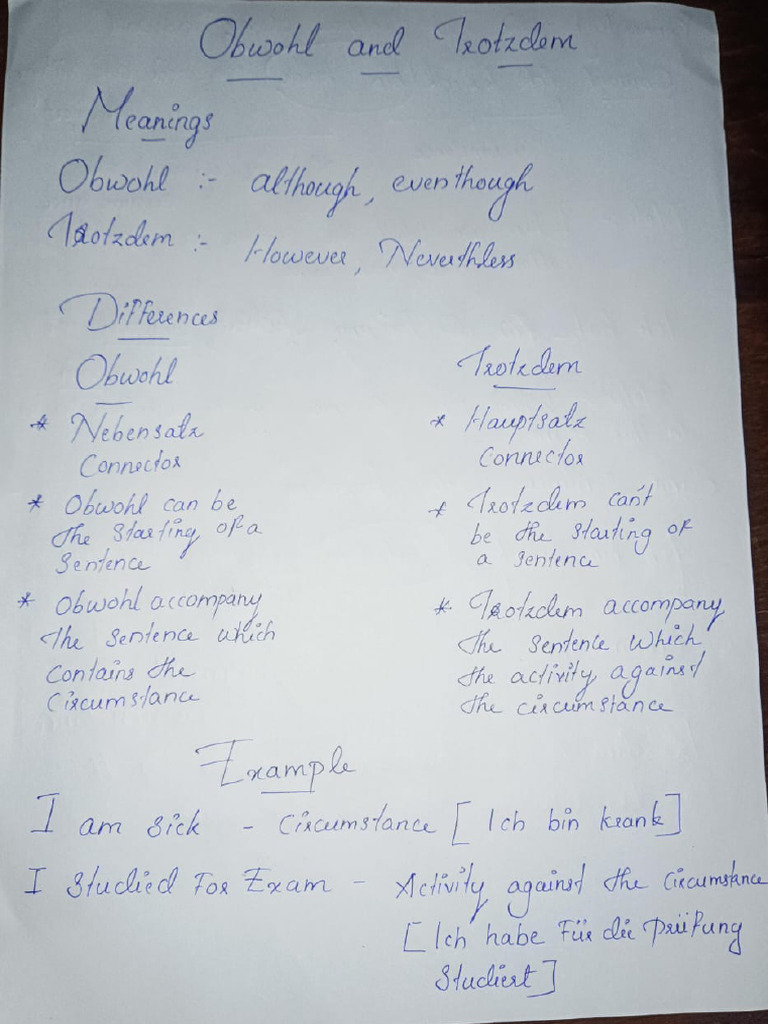 Obwohl and Trotzdem
Meanings
Obwohl :- although, eventhough
Trotzdem :- However, Neverthless
Differences
Obwohl
* Nebensatz
Connector
* Obwohl can be
the starting of a
sentence
* Obwohl accompany
the sentence which
contains the
circumstance
Trotzdem
* Hauptsatz
Connector
* Trotzdem can't
be the starting of
a sentence
* Trotzdem accompany
the sentence which
the activity against
the circumstance
Example
I am sick - circumstance [Ich bin krank]
I studied For Exam - Activity against the circumstance
[Ich habe Für die Prüfung
studiert]